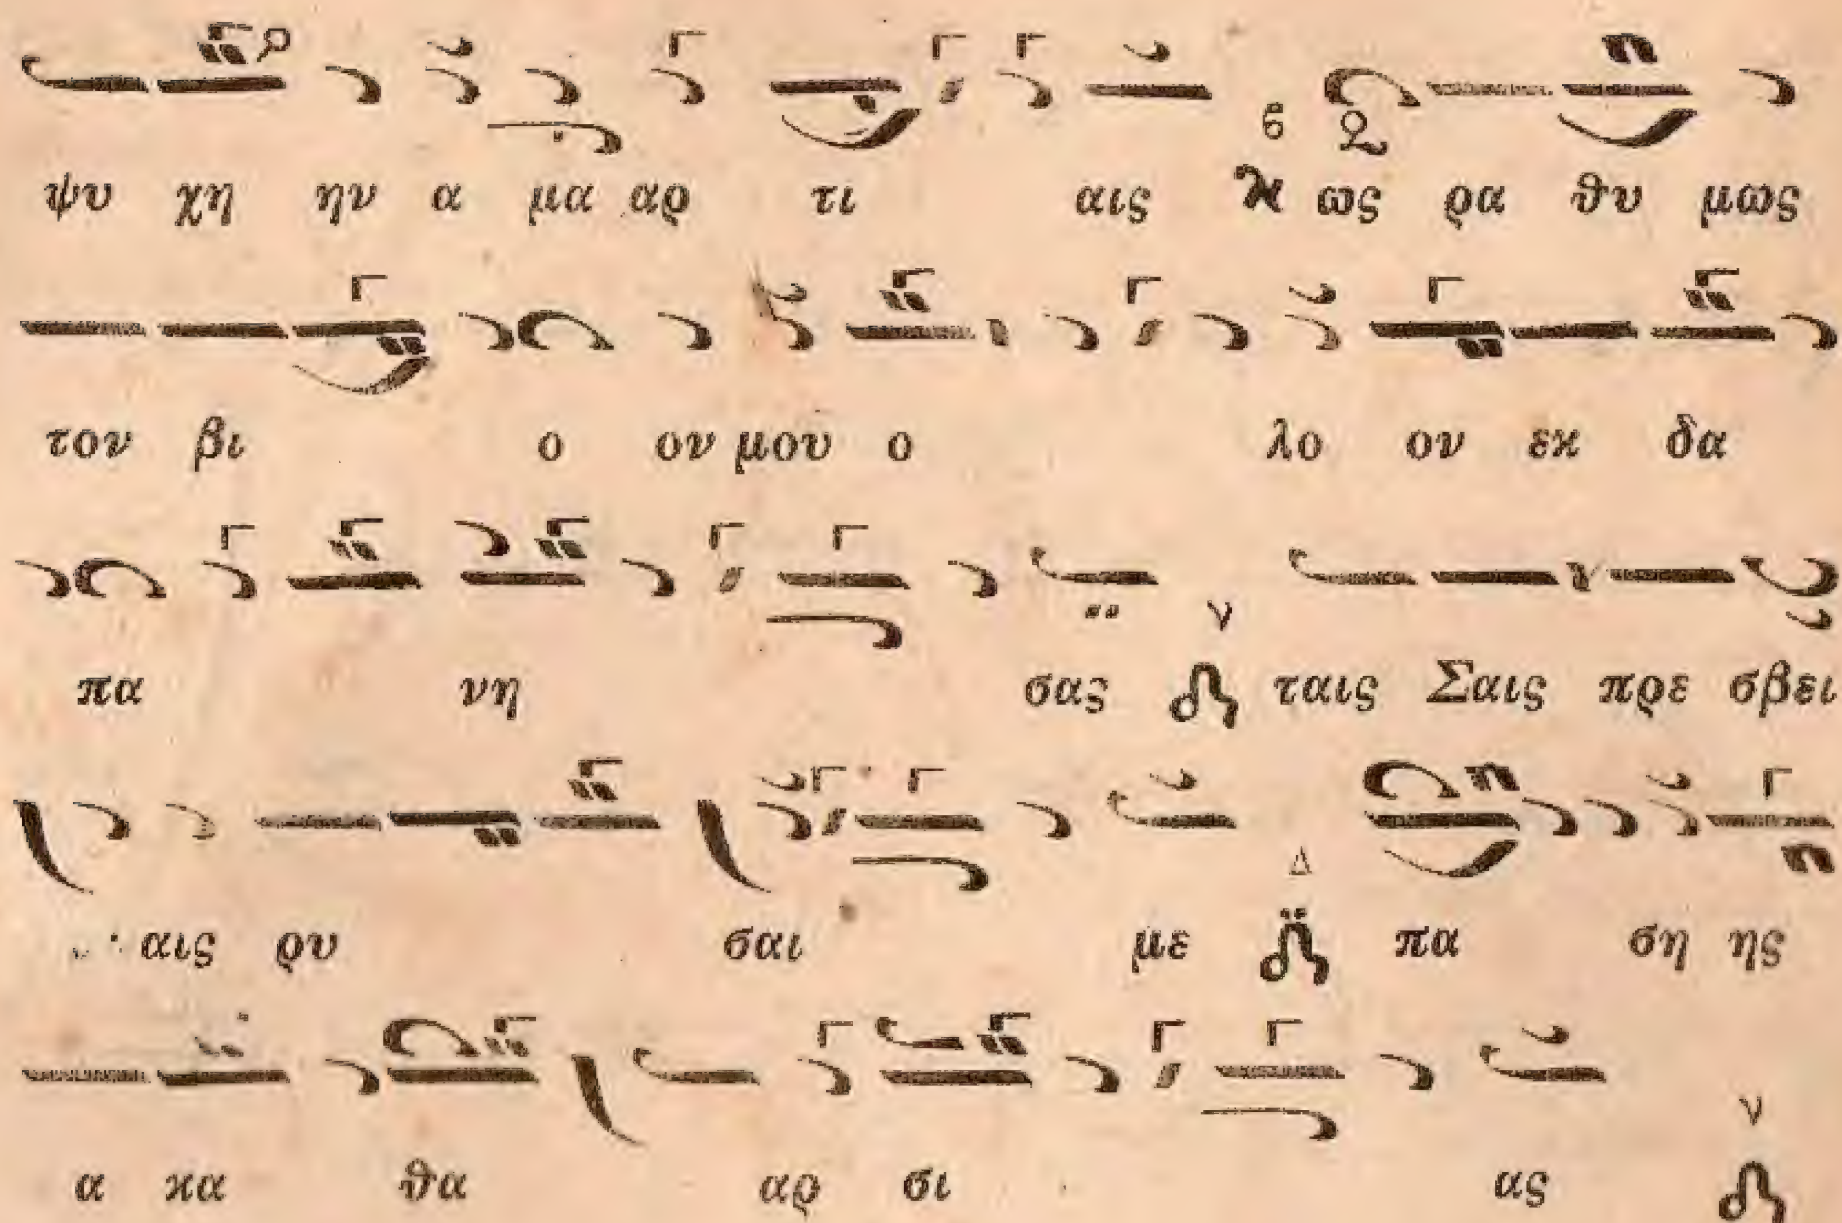 ψυ χη ην α μα αρ τι αις ϗ ως ρα θυ μως
τον βι ο ον μου ο λο ον εκ δα
πα νη σας ταις Σαις πρε σβει
αις ρυ σαι με πα ση ης
α κα θα αρ σι ας